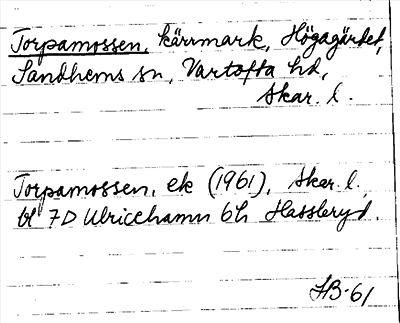 Torpamossen, kärrmark, Högagärdet,
Sandhems sn, Vartofta hd,
Skar. l.
Torpamossen, ek (1961), Skar. l.
bl 7D Ulricehamn 6h Hassleryd.
HB-61